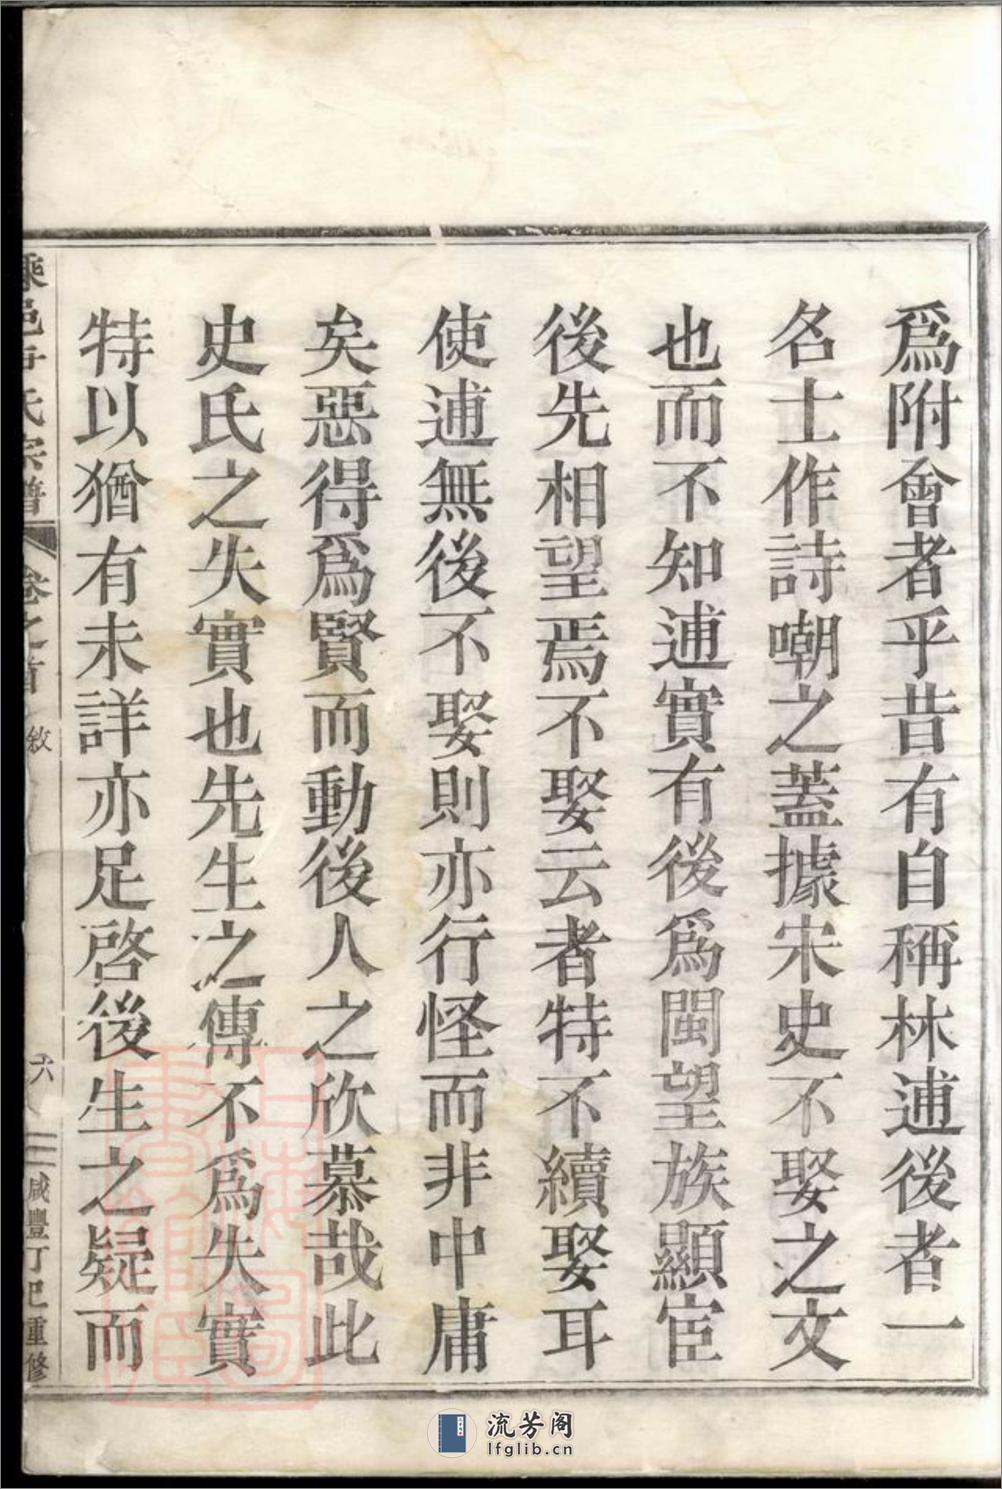 爲附會者乎昔有自稱林逋後者一
名士作詩嘲之蓋據宋史不娶之文
也而不知逋實有後爲閩望族顯宦
後先相望焉不娶云者特不續娶耳
使逋無後不娶則亦行怪而非中庸
矣惡得爲賢而動後人之欣慕哉此
史氏之失實也先生之傳不爲失實
特以猶有未詳亦足啓後生之疑而
氏宗譜
卷之首
敘
六
咸豐丁巳重修
流芳阁
lfglib.cn